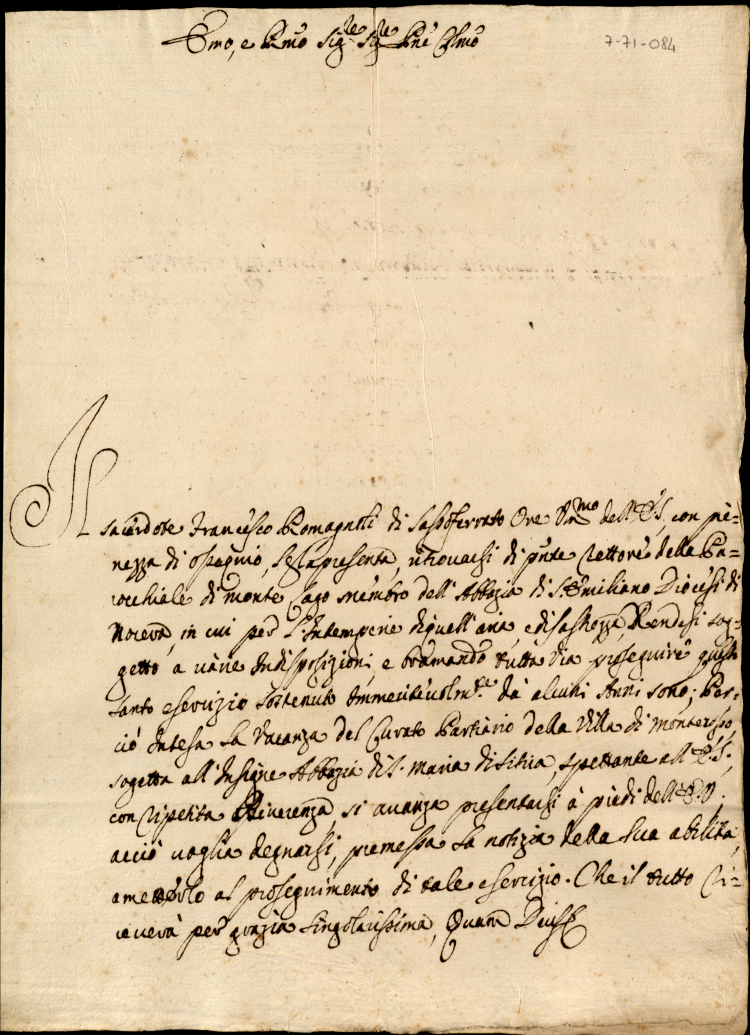 Emo, e Rmo Sig.re Sig.re Pne Colmo
7-71-084
Il
sacerdote Francesco Romagnoli di Sassoferrato Ore Vmo dell'E.S. con pie-
nezza di ossequio, Le rapresenta, ritrovarsi di pnte rettore della Pa-
rocchiale di monte Lago membro dell'Abbazia di S. Emiliano Diocesi di
Nocera, in cui per l'Intemperie di quell'aria e disastrezza Rendesi sog-
getto a varie Indisposizioni e bramando tutta via proseguire questo
santo eserizio sostenuto Immeritevolm.te da alcuni Anni sono; Per-
ciò Intesa la vacanza del Curato Partiario della Villa di monterosso
sogetta all'Insigne Abbazia di S. Maria di Sitria, spettante all'E.S.
con ripetita Riverenza, si avanza presentarsi à piedi dell'E.V.
acciò voglia degnarsi, premessa la notizia della sua abilità
ametterlo al proseguimento di tale eserizio. Che il tutto ri-
ceverà per grazia singolarissima, Quam Deus